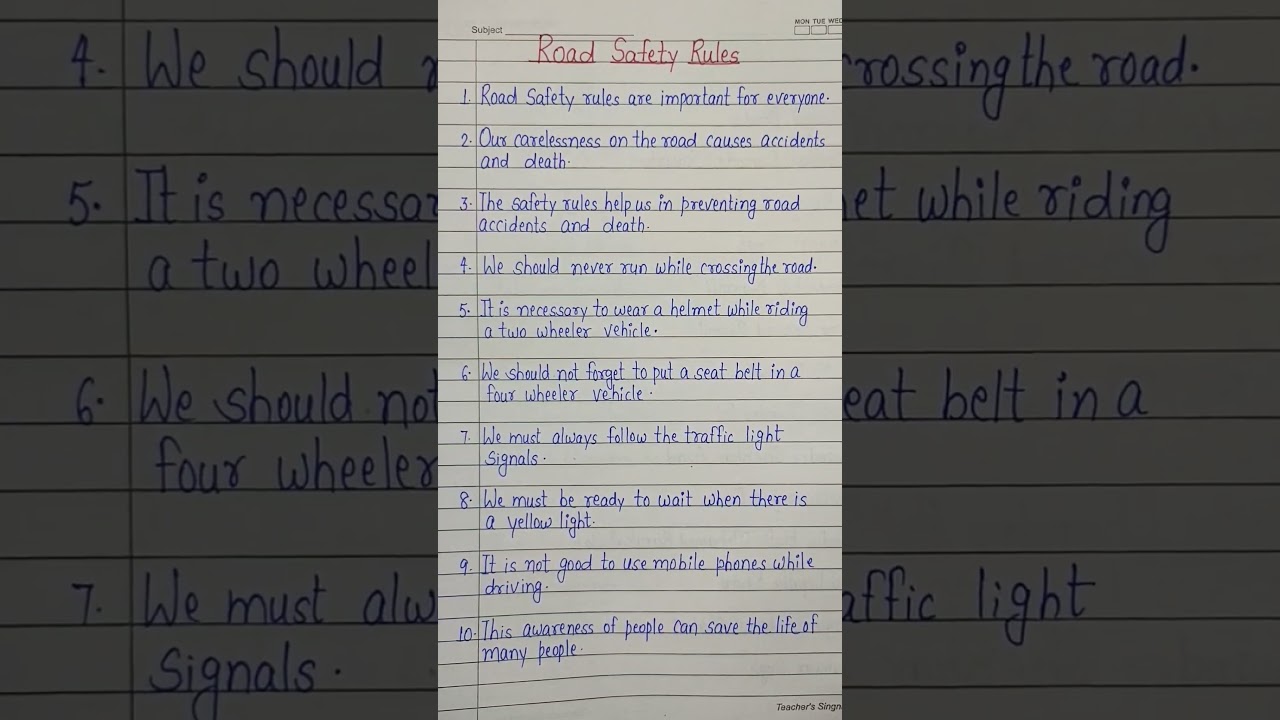 Subject
MON TUE WED
Road Safety Rules
1. Road Safety rules are important for everyone.
2. Our carelessness on the road causes accidents
and death.
3. The safety rules help us in preventing road
accidents and death.
4. We should never run while crossing the road.
5. It is necessary to wear a helmet while riding
a two wheeler vehicle.
6. We should not forget to put a seat belt in a
four wheeler vehicle.
7. We must always follow the traffic light
Signals.
8. We must be ready to wait when there is
a yellow light.
9. It is not good to use mobile phones while
driving.
10. This awareness of people can save the life of
many people.
Teacher's Singn
4. We should
5. It is necessar
a two wheel
6. We should not
four wheeler
7. We must alw
Signals.
rossing the road.
et while riding
eat belt in a
affic light